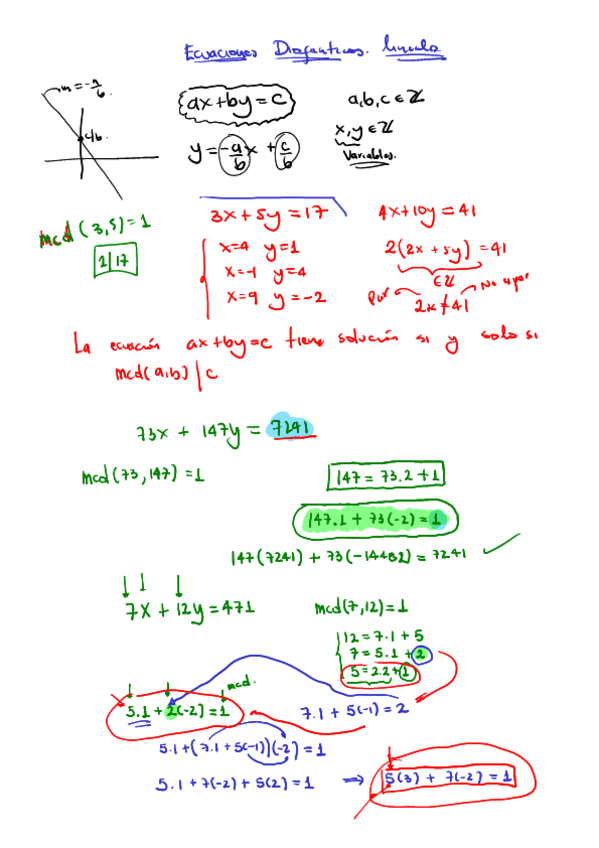 Ecuaciones Diofanticas. lineales
m = -a/b
c/b
ax+by=c
a,b,c ∈ ℤ
y = -a/b x + c/b
x,y ∈ ℤ
Variables.
mcd (3,5)=1
2|17
3x+5y=17
x=4 y=1
x=-1 y=4
x=9 y=-2
4x+10y=41
2(2x+5y)=41
∈ ℤ
Par
2k≠41
No es par
La ecuación ax+by=c tiene solución si y solo si
mcd(a,b)|c
73x + 147y = 7241
mcd(73,147)=1
147=73.2+1
147.1+73(-2)=1
147(7241)+73(-14482)=7241
7x+12y=471
mcd(7,12)=1
12=7.1+5
7=5.1+2
5=2.2+1
mcd.
5.1+2(-2)=1
7.1+5(-1)=2
5.1+(7.1+5(-1))(-2)=1
5.1+7(-2)+5(2)=1 ⇒ 5(3)+7(-2)=1